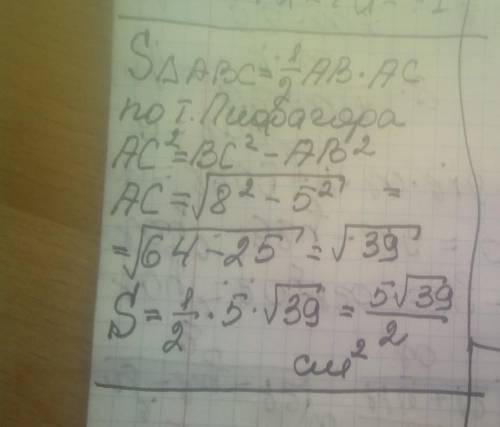 S△ABC = 1/2 AB · AC
по т. Пифагора
AC² = BC² − AB²
AC = √(8² − 5²) =
= √(64 − 25) = √39
S = 1/2 · 5 · √39 = 5√39/2
см²